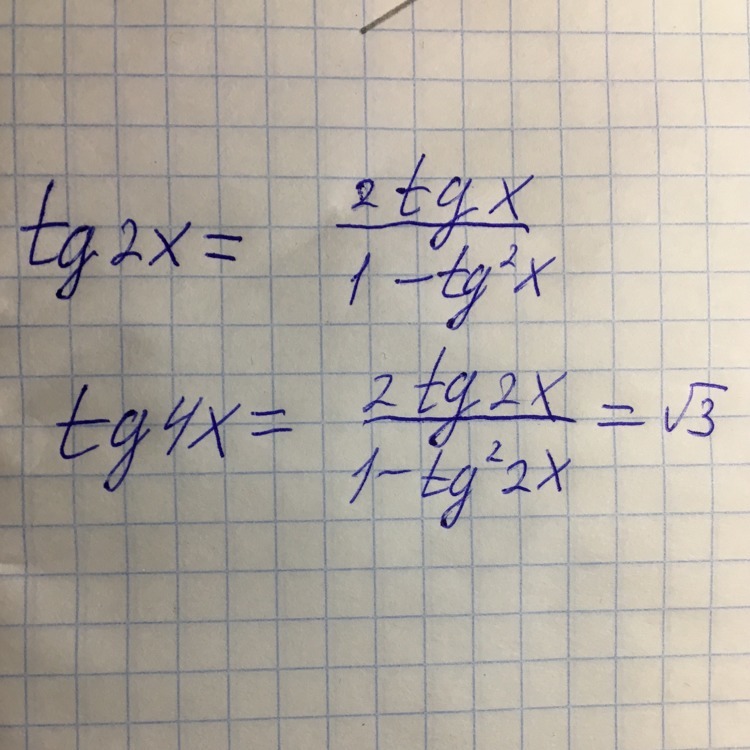 tg 2x = 2 tg x / 1 - tg²x
tg 4x = 2 tg 2x / 1 - tg² 2x = √3